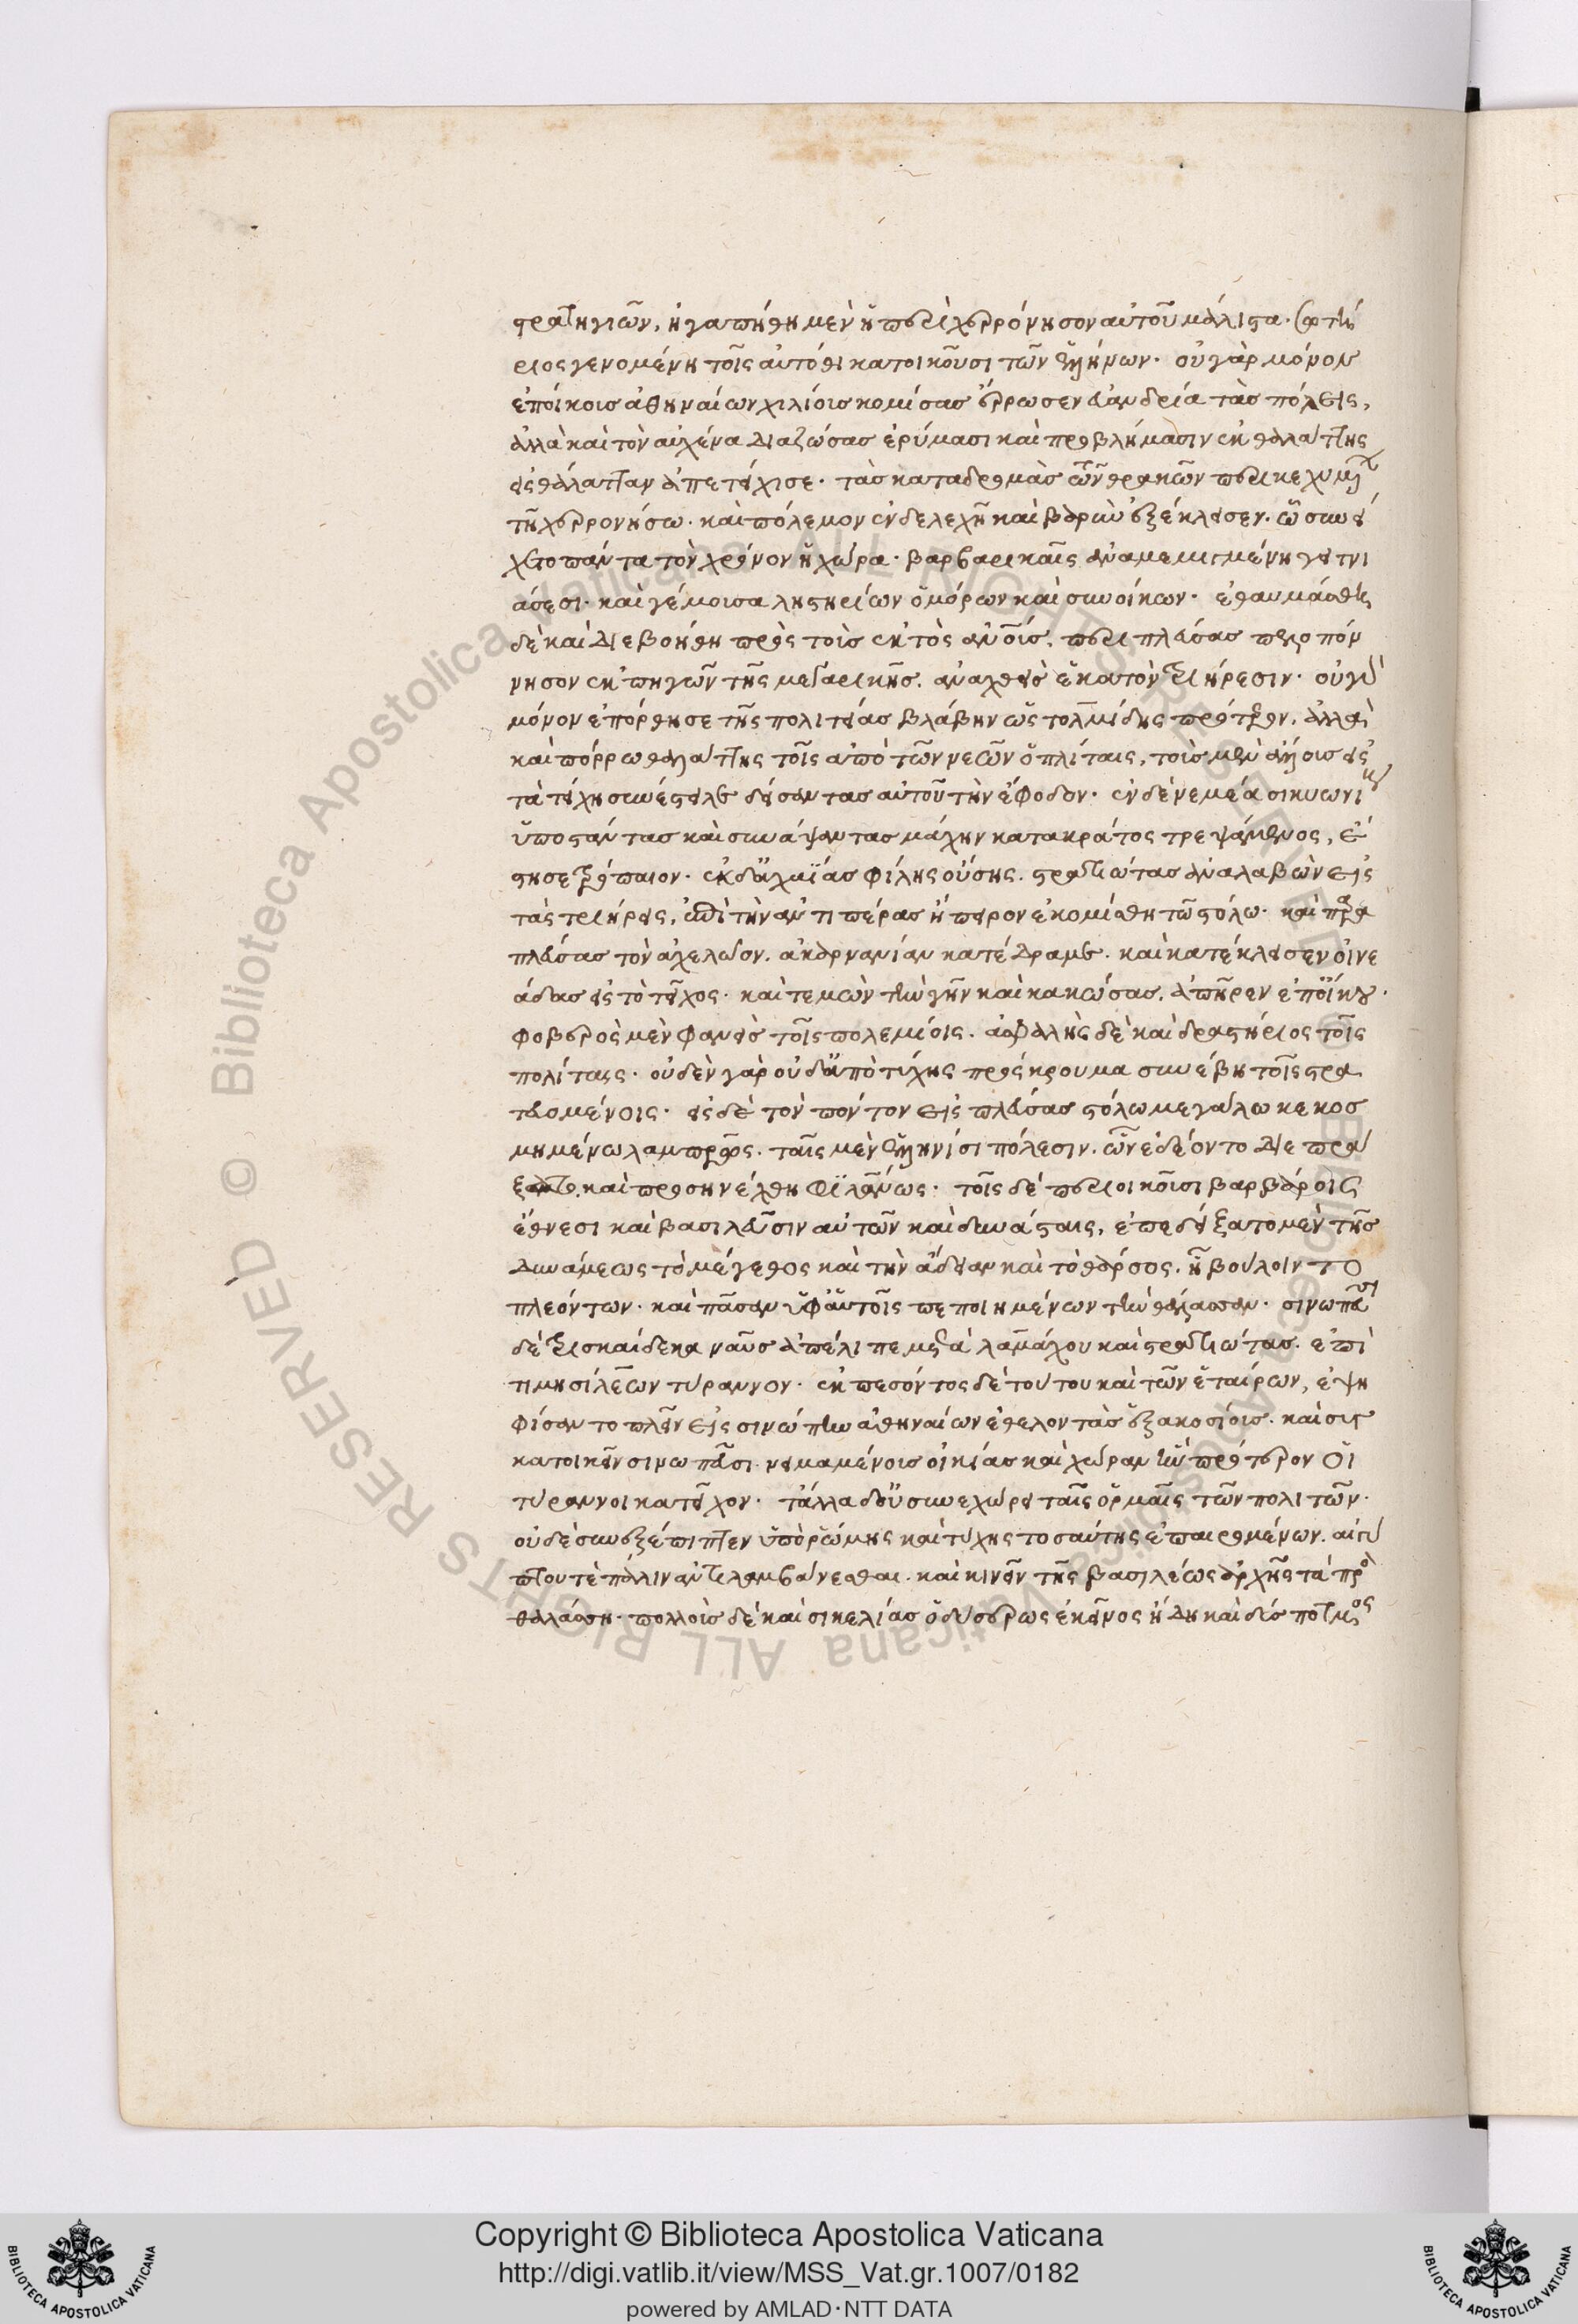 στρατηγιῶν, ἠγαπήθη μὲν ἡ περὶ χερρόνησον αὐτοῦ μάλιστα. σωτή
ριος γενομένη τοῖς αὐτόθι κατοικοῦσι τῶν ἑλλήνων. οὐ γὰρ μόνον
ἐποίκους ἀθηναίων χιλίους κομίσας ἔρρωσεν εὐανδρία τὰς πόλεις,
ἀλλὰ καὶ τὸν αὐχένα διαζώσας ἐρύμασι καὶ προβλήμασιν ἐκ θαλάττης
εἰς θάλατταν ἀπετείχισε. τὰς καταδρομὰς τῶν θρακῶν περικεχυμένων
τῇ χερρονήσω. καὶ πόλεμον ἐνδελεχῆ καὶ βαρὺν ἐξέκλεισεν. ὧ συνεί
χετο πάντα τὸν χρόνον ἡ χώρα. βαρβαρικαῖς ἀναμεμιγμένη γειτνι
άσεσι. καὶ γέμουσα ληστηρίων ὁμόρων καὶ συνοίκων. ἐθαυμάσθη
δὲ καὶ διεβοήθη πρὸς τοὺς ἐκτὸς ἀνθρώπους. περιπλεύσας πελοπόν
νησον ἐκ πηγῶν τῆς μεγαρικῆς. ἀναχθεὶς ἑκατὸν τριήρεσιν. οὐ γὰρ
μόνον ἐπόρθησε τῆς πολιτείας βλάβην ὡς τολμίδης πρότερον. ἀλλὰ
καὶ πόρρω θαλάττης τοῖς ἀπὸ τῶν νεῶν ὁπλίταις, τοὺς μὲν ἄλλους εἰς
τὰ τείχη συνέστειλε δείσαντας αὐτοῦ τὴν ἔφοδον. ἐν δὲ νεμέα σικυωνίους
ὑποστάντας καὶ συνάψαντας μάχην κατακράτος τρεψάμενος, ἔ
στησε τρόπαιον. ἐκ δ' ἀχαΐας φίλης οὔσης. στρατιώτας ἀναλαβὼν εἰς
τὰς τριήρεις, ἐπὶ τὴν ἀντιπέρας ἤπειρον ἐκομίσθη τῶ στόλω. καὶ παρα
πλεύσας τὸν ἀχελῶον. ἀκαρνανίαν κατέδραμε. καὶ κατέκλεισεν οἰνε
άδας εἰς τὸ τεῖχος. καὶ τεμὼν τὴν γῆν καὶ κακώσας. ἀπῆρεν ἐπ' οἴκου.
φοβερὸς μὲν φανεὶς τοῖς πολεμίοις. ἀσφαλὴς δὲ καὶ δραστήριος τοῖς
πολίταις. οὐδὲν γὰρ οὐδ' ἀπὸ τύχης πρόσκρουμα συνέβη τοῖς στρα
τευομένοις. εἰς δὲ τὸν πόντον εἰσπλεύσας στόλω μεγάλω κεκοσ
μημένω λαμπρῶς. ταῖς μὲν ἑλληνίσι πόλεσιν. ὧν ἐδέοντο διεπρά
ξατο. καὶ προσηνέχθη φιλανθρώπως. τοῖς δὲ περιοικοῦσι βαρβάροις
ἔθνεσι καὶ βασιλεῦσιν αὐτῶν καὶ δυνάσταις, ἐπεδείξατο μὲν τῆς
δυνάμεως τὸ μέγεθος καὶ τὴν ἄδειαν καὶ τὸ θάρσος. ἧ βούλοιντο
πλεόντων. καὶ πᾶσαν ὑφ' αὑτοῖς πεποιημένων τὴν θάλασσαν. σινωπεῦσι
δὲ τρισκαίδεκα ναῦς ἀπέλιπε μετὰ λαμάχου καὶ στρατιώτας. ἐπὶ
τιμησίλεων τύραννον. ἐκπεσόντος δὲ τούτου καὶ τῶν ἑταίρων, ἐψη
φίσαντο πλεῖν εἰς σινώπην ἀθηναίων ἐθελοντὰς ἑξακοσίους. καὶ συγ
κατοικεῖν σινωπεῦσι. νειμαμένους οἰκίας καὶ χώραν ἣν πρότερον οἱ
τύραννοι κατεῖχον. τἄλλα δ' οὐ συνεχώρει ταῖς ὁρμαῖς τῶν πολιτῶν.
οὐδὲ συνεξέπιπτεν ὑπὸ ῥώμης καὶ τύχης τοσαύτης ἐπαιρομένων. αἰγύ
πτου τὲ πάλιν ἀντιλαμβάνεσθαι. καὶ κινεῖν τῆς βασιλέως ἀρχῆς τὰ πρὸς
θαλάσση. πολλοὺς δὲ καὶ σικελίας ὁ δύσερως ἐκεῖνος ἤδη καὶ δύσποτμος
Copyright © Biblioteca Apostolica Vaticana
http://digi.vatlib.it/view/MSS_Vat.gr.1007/0182
powered by AMLAD·NTT DATA
BIBLIOTECA APOSTOLICA VATICANA
BIBLIOTECA APOSTOLICA VATICANA
© Biblioteca Apostolica Vaticana ALL RIGHTS RESERVED
© Biblioteca Apostolica Vaticana ALL RIGHTS RESERVED